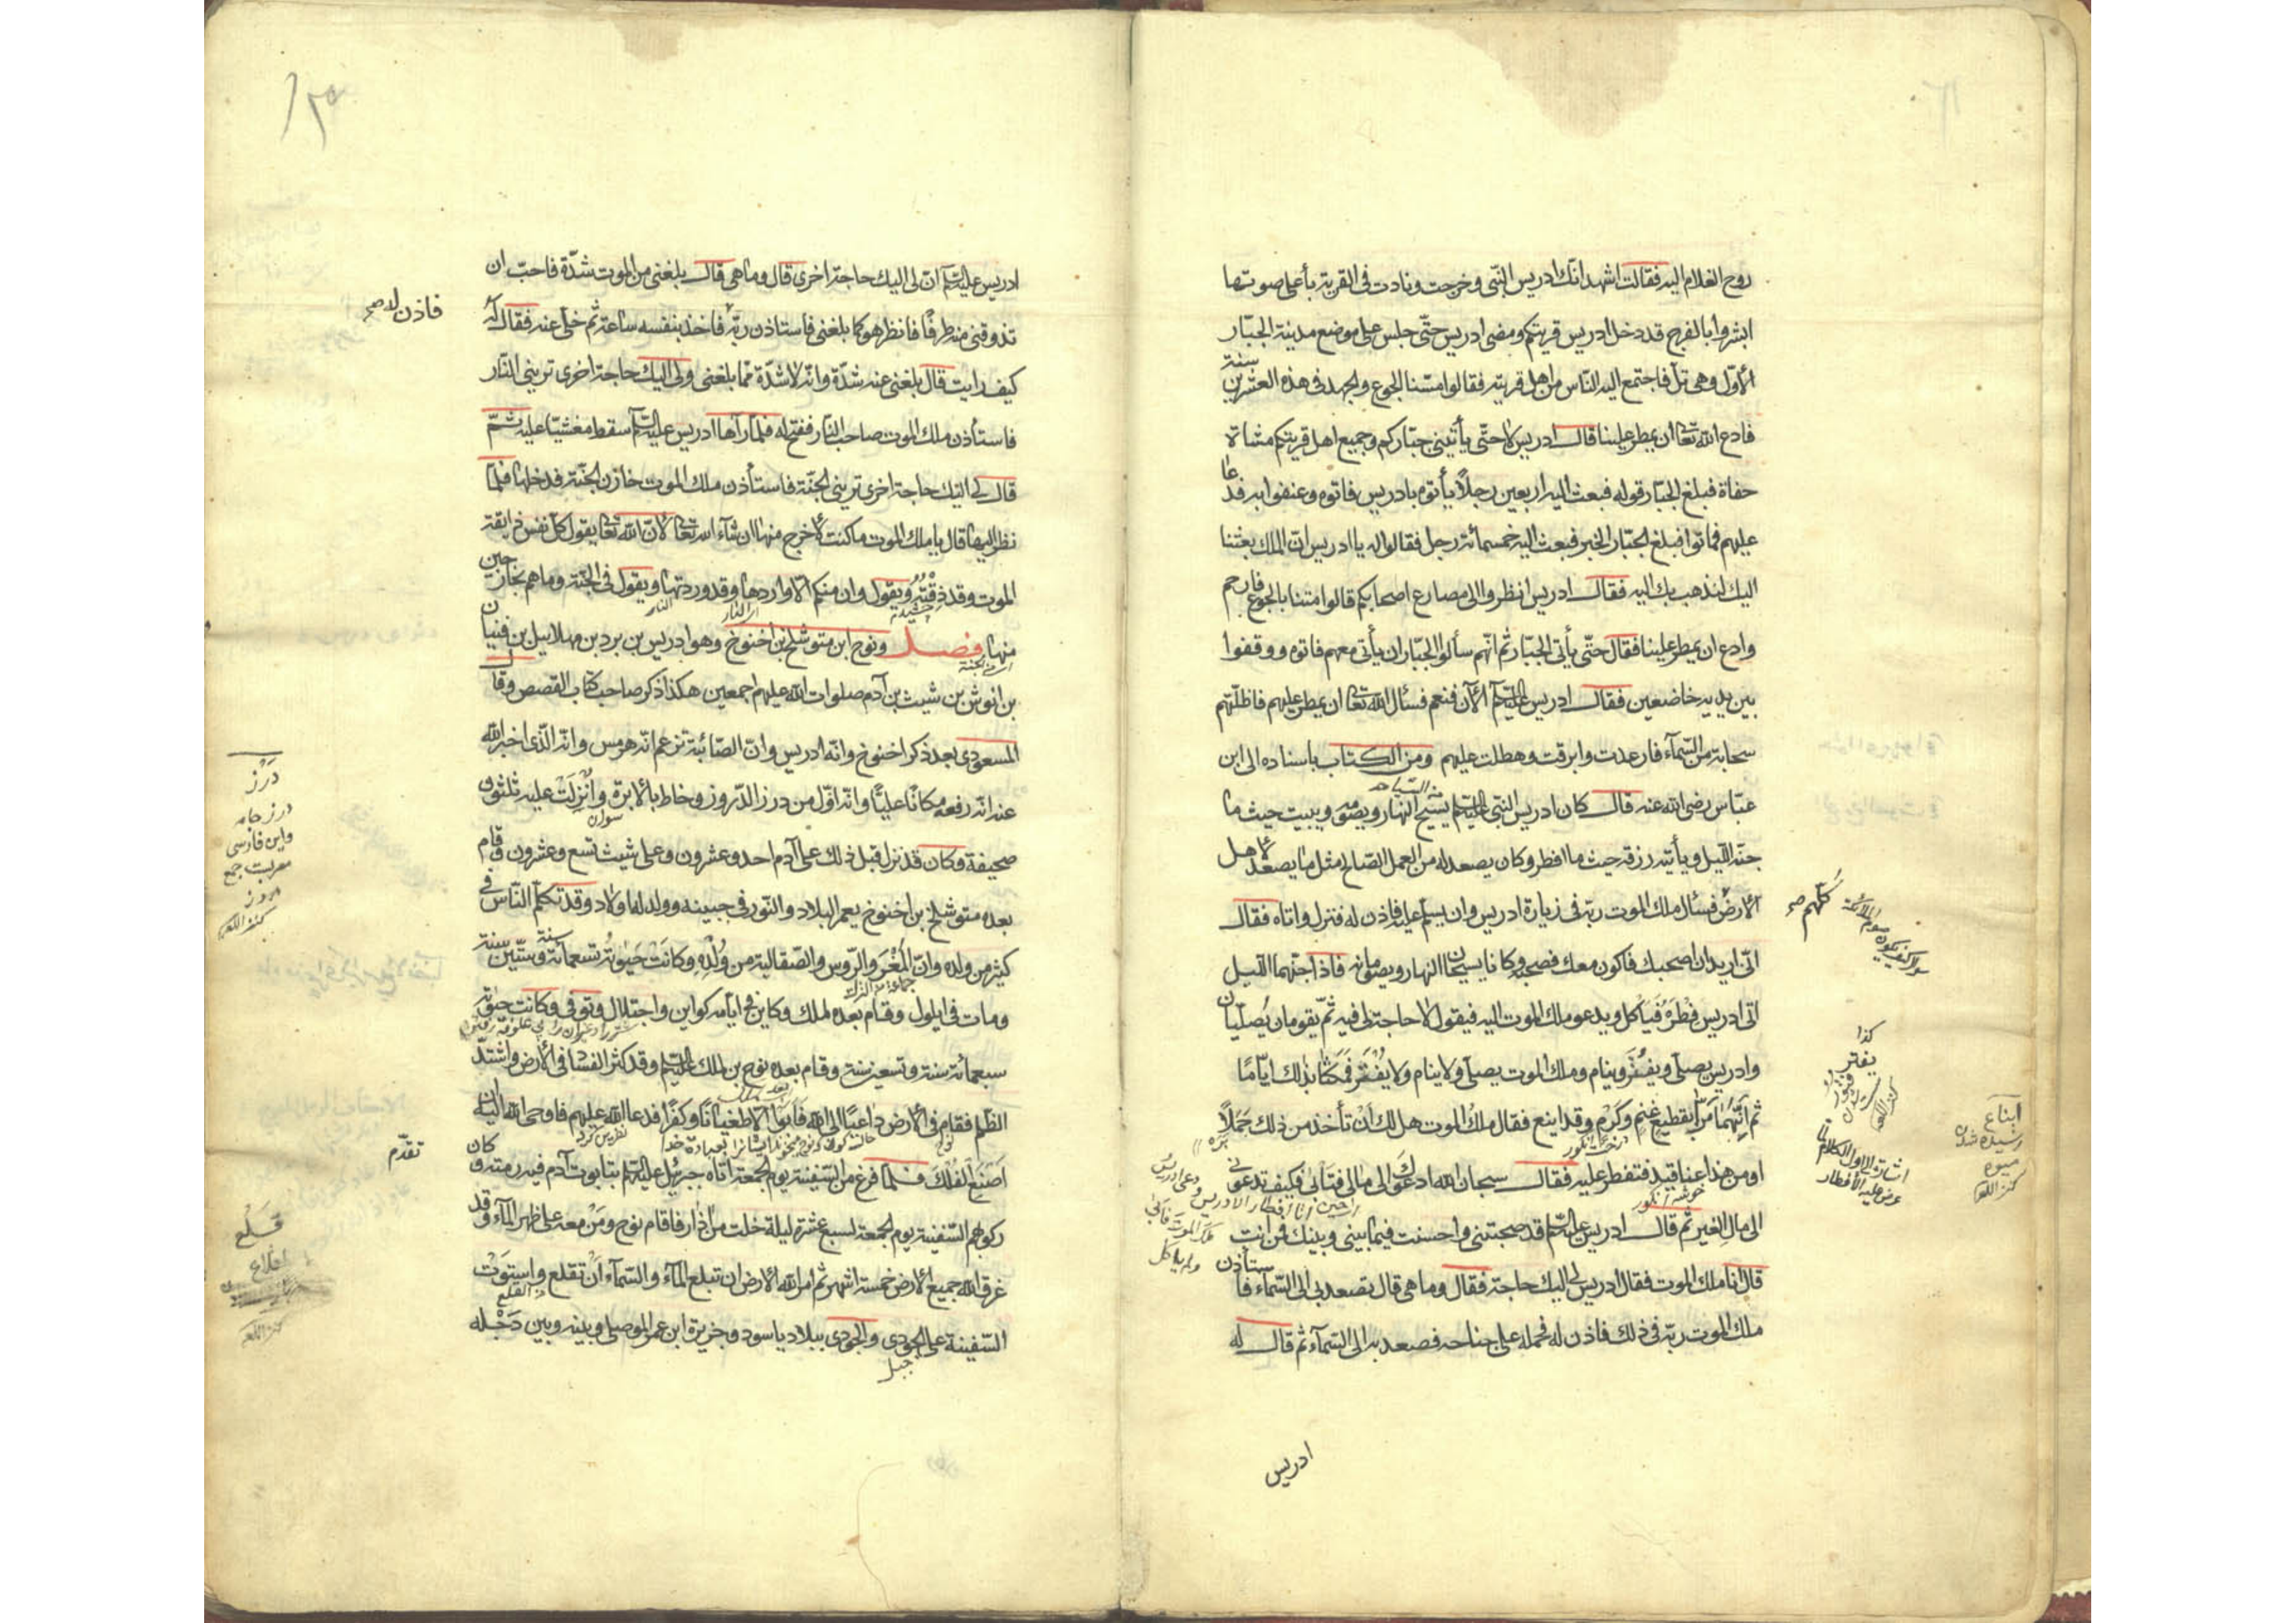 روح الغلام اليه فقالت اشهد انك ادريس النّبى وخرجت ونادت فى القرية بأعلى صوتها
ابشروا بالفرج قد دخل ادريس قريتكم ومضى ادريس حتّى جلس على موضع مدينة الجبّار
الأوّل وهى تلّ فاجتمع اليه النّاس من اهل قريته فقالوا مسّنا الجوع والجهد فى هذه العشرين سنة
فادع الله تعا ان يمطر علينا قال ادريس لا حتّى يأتينى جبّاركم وجميع اهل قريتكم مشاة
حفاة فبلغ الجبّار قوله فبعث اليه اربعين رجلاً يأتوه بادريس فاتوه وعنفوا به فدعا
عليهم فماتوا فبلغ الجبّار الخبر فبعث اليه خمسمائة رجل فقالوا له يا ادريس انّ الملك بعثنا
اليك لنذهب بك اليه فقال ادريس انظروا الى مصارع اصحابكم قالوا متنا بالجوع فارحم
وادع ان يمطر علينا فقال حتّى يأتى الجبّار ثم انّهم سألوا الجبّار ان يأتى معهم فاتوه ووقفوا
بين يديه خاضعين فقال ادريس عليه السّلم الآن فنعم فسئل الله تعا ان يمطر عليهم فاظلّتهم
سحابة من السّمآء فارعدت وابرقت وهطلت عليهم ومن الكتاب باسناده الى ابن
عبّاس رضى الله عنه قال كان ادريس النبى عليه السّلم يسيح النهار ويصومه ويبيت حيث ما
من السّياحه
جنّه اللّيل ويأتيه رزقه حيث ما افطر وكان يصعد له من العمل الصّالح مثل ما يصعد لاهل
الأرض فسئل ملك الموت ربّه فى زيارة ادريس وان يسلّم عليه فاذن له فنزل واتاه فقال
كلّهم صح
انّى اريد ان اصحبك فاكون معك فصحبه وكانا يسيحان النهار ويصومانه فاذا جنّهما اللّيل
اتى ادريس فِطْرَهُ فَيَأكل ويدعو ملك الموت اليه فيقول لا حاجة لى فيه ثمّ يقومان يُصلّيان
وادريس يصلّى ويفتُر وينام وملك الموت يصلّى ولا ينام ولا يُفتُر فمَكَثا بذلك ايّامًا
كذا
يفتر
كنز اللغه
ثم انّهُما مرّا بقطيع غنم وكَرْم وقد اينع فقال ملك الموت هل لك اَنْ تأخذ من ذلك حَمَلاً
ايناع
رسيده شدن
ميوه
كنز اللغه
درخت انگور
برّه
او من هذا عنا قيد فنفطر عليه فقال سبحان الله ادعوك الى مالى فتأبى فكيف تدعونى
اشارة الى اول الكلام
عرض عليه الأفطار
خوشه انگور
الى مال الغير ثم قال ادريس عليه السّلم قد صحبتنى واحسنت فيما بينى وبينك فمن انت
قال انا ملك الموت فقال ادريس لى اليك حاجة فقال وما هى قال تصعد بى الى السّمآء فاستأذن
ملك الموت ربّه فى ذلك فاذن له فحمله على جناحه فصعد به الى السّمآء ثم قال له
ادريس
ادريس عليه السّلم انّ لى اليك حاجة اخرى قال وما هى قال بلغنى من الموت شدّة فاحبّ ان
تذوقنى منه طرفًا فانظر هو كما بلغنى فاستاذن ربّه فاخذ بنفسه ساعة ثم خلّى عنه فقال له
فاذن له صح
كيف رايت قال بلغنى عنه شدّة وانّه لاشدّ ممّا بلغنى ولى اليك حاجة اخرى ترينى النّار
فاستأذن ملك الموت صاحب النار ففتح له فلمّا رآها ادريس عليه السّلم سقط مغشيّا عليه ثمّ
قال لى اليك حاجة اخرى ترينى الجنّة فاستأذن ملك الموت خازن الجنّة فدخلها فلمّا
نظر اليها قال يا ملك الموت ما كنت لأخرج منها ان شآء الله تعا لأنّ الله تعا يقول كلّ نفس ذايقة
الموت وقد ذقتُه ويقول وان منكم الّا واردها وقد وردتها ويقول فى الجنّة وما هم بخارجين
چشيدم
اى النار
النار
منها فصل ونوح ابن متوشلخ بن اخنوخ وهو ادريس بن برد بن مهلاييل بن قنيان
اى من الجنة
بن انوش بن شيث بن آدم صلوات الله عليهم اجمعين هكذا ذكر صاحب كتاب القصص وقال
المسعودى بعد ذكر اخنوخ وانّه ادريس وانّ الصّائبة تزعم انّه هرمس وانّه الّذى اخبر الله
عنه انّه رفعه مكانًا عليًّا وانّه اوّل من درز الدّروز وخاط بالابرة واُنْزِلَتْ عليه ثلثون
دَرْز
درز جامه
واين فارسى
معربست جمع
دروز
كنز اللغه
سوزن
صحيفة وكان قد نزل قبل ذلك على آدم احد وعشرون وعلى شيث تسع وعشرون وقام
بعده متوشلخ بن اخنوخ يعمر البلاد والنّور فى جبينه وولد له اولاد وقد تكلّم النّاس فى
كثير من ولده وانّ البلغر والرّوس والصّقالبة من وُلْدِه وكانت حيوته تسعمائة سنة وستّين سنة
جماعة من الترك
ومات فى ايلول وقام بعده لملك وكاين فى ايّامه كواين واختلال وتوفى وكانت حيوته
سبعمائة سنة وتسعين سنة وقام بعده نوح بن لمك عليه السّلم وقد كثر الفسا فى الأرض واشتدّ
الظلم فقام فى الأرض داعيًا الى الله فابوا الا طغيانًا وكفرًا فدعا الله عليهم فاوحى الله اليه ان
نفرين كرد
اصنع الفلك فلما فرغ من السّفينة يوم الجمعة اتاه جبرئيل عليه السّلم بتابوت آدم فيه رمته وكان
تقدّم
ركوبهم السّفينة يوم الجمعة لسبع عشرة ليلة خلت من آذار فاقام نوح ومَنْ معه على ظهر المآء وقد
قَلْع
اقلاع
كنز اللغه
غرق الله جميع الأرض خمسة اشهر ثم امر الله الأرض ان تبلع المآء والسّمآء اَنْ تقلع واستوَتْ
من القلع
السّفينة على الجودى والجودى ببلاد ياسود وجزيرة ابن عمر الموصلى وبينه وبين دَجْله
جبل